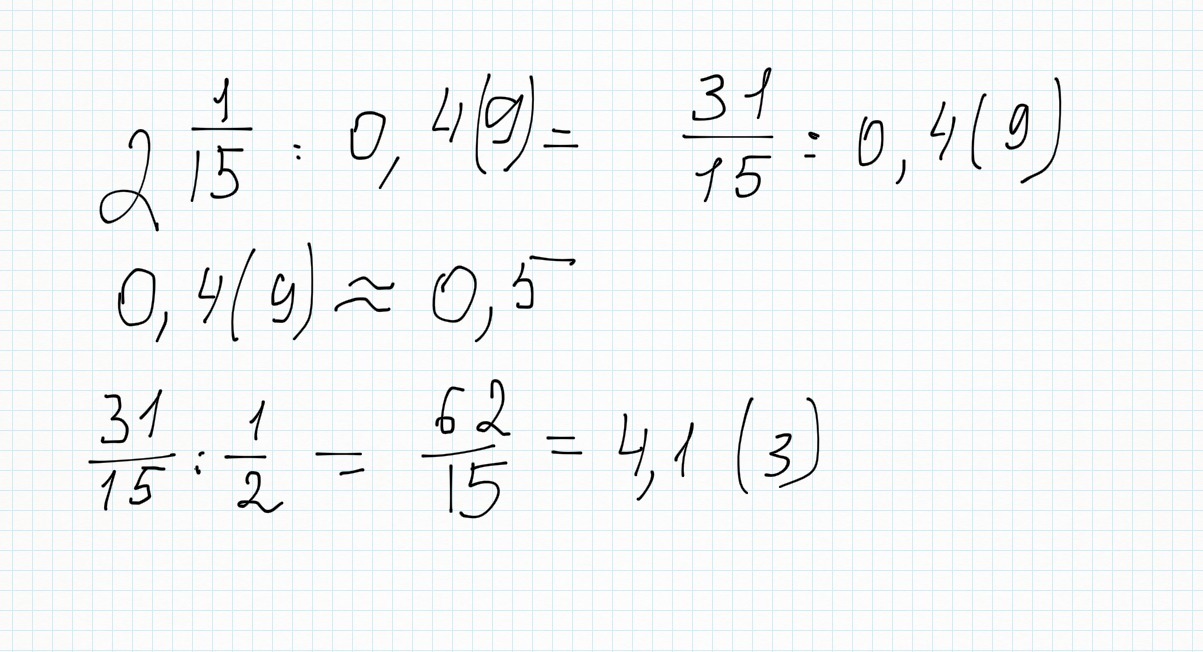 2 1/15 : 0,4(9) = 31/15 : 0,4(9)
0,4(9) ≈ 0,5
31/15 : 1/2 = 62/15 = 4,1(3)